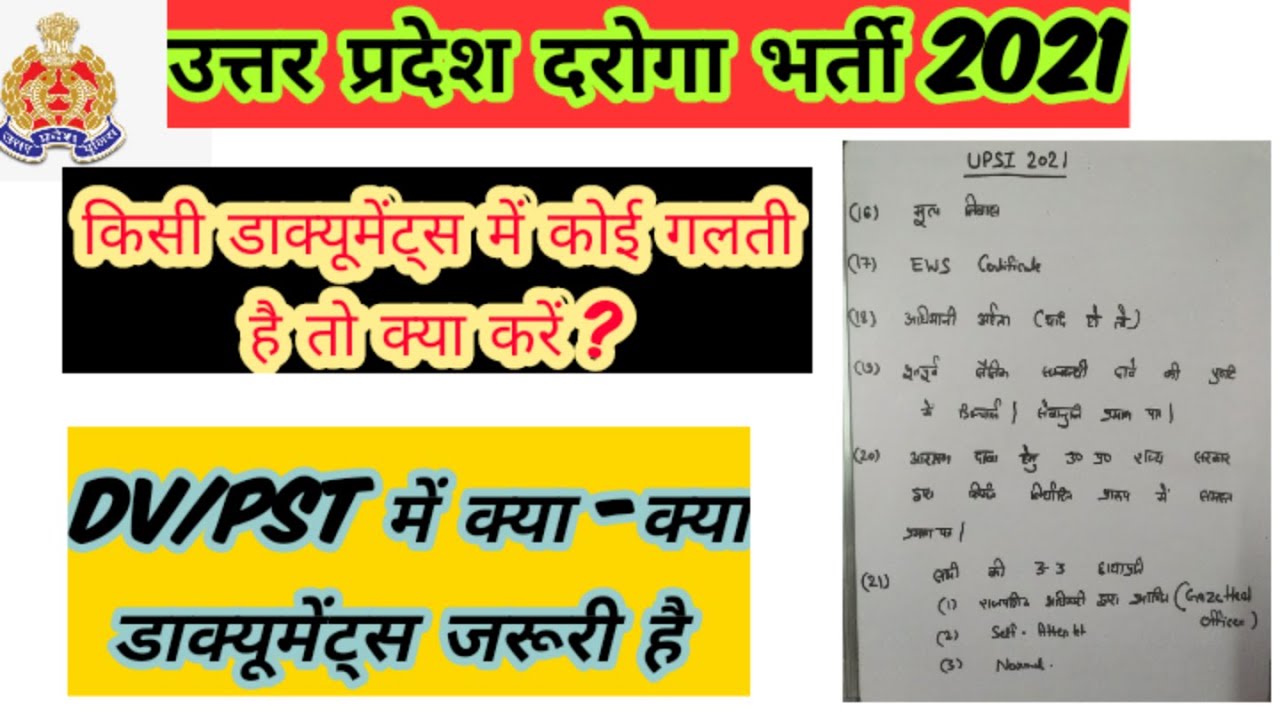 उत्तर प्रदेश दरोगा भर्ती 2021
उत्तर प्रदेश पुलिस
किसी डाक्यूमेंट्स में कोई गलती
है तो क्या करें ?
DV/PST में क्या - क्या
डाक्यूमेंट्स जरूरी है
UPSI 2021
(16) मूल निवास
(17) EWS Certificate
(18) अधिमानी अर्हता (यदि हो तो)
भूतपूर्व सैनिक सम्बन्धी दावे की पुष्टि
में डिस्चार्ज / सेवामुक्ति प्रमाण पत्र |
(20) आरक्षण दावा हेतु उ० प्र० राज्य सरकार
द्वारा निर्धारित प्रारूप में
प्रमाण पत्र |
(21) सभी की 3-3 छायाप्रति
(1) राजपत्रित अधिकारी द्वारा (Gazetted
Officer)
(2) Self-
(3) Normal.